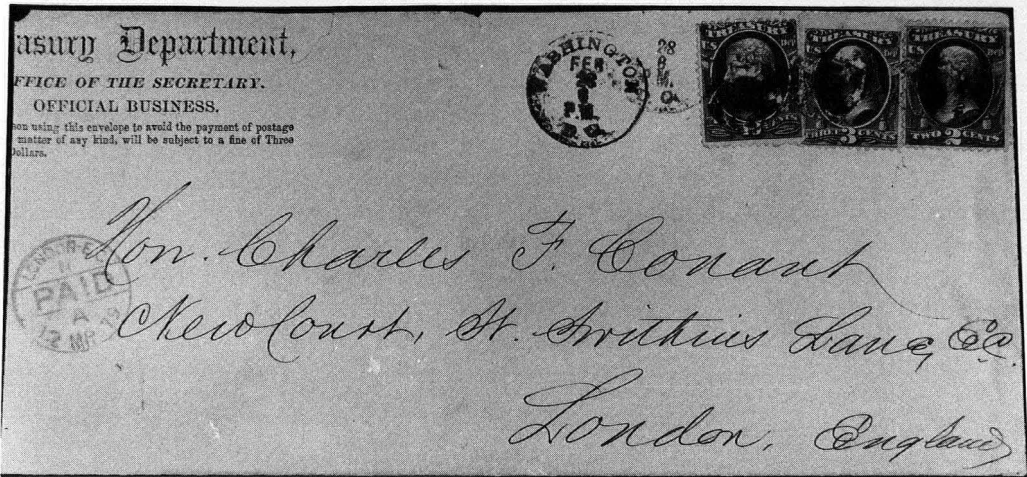 asury Department,
FFICE OF THE SECRETARY.
OFFICIAL BUSINESS.
son using this envelope to avoid the payment of postage
matter of any kind, will be subject to a fine of Three
Dollars.
WASHINGTON
FEB
28
6
P.M.
D.C.
28
6
M.
C.
TREASURY
U S
15 CENTS
TREASURY
U S
THREE 3 CENTS
TREASURY
U S
TWO 2 CENTS
Hon. Charles F. Conant
New Court, St. Swithins Lane, E.C.
London, England
LONDON E.C
PAID
A
12 MR 79